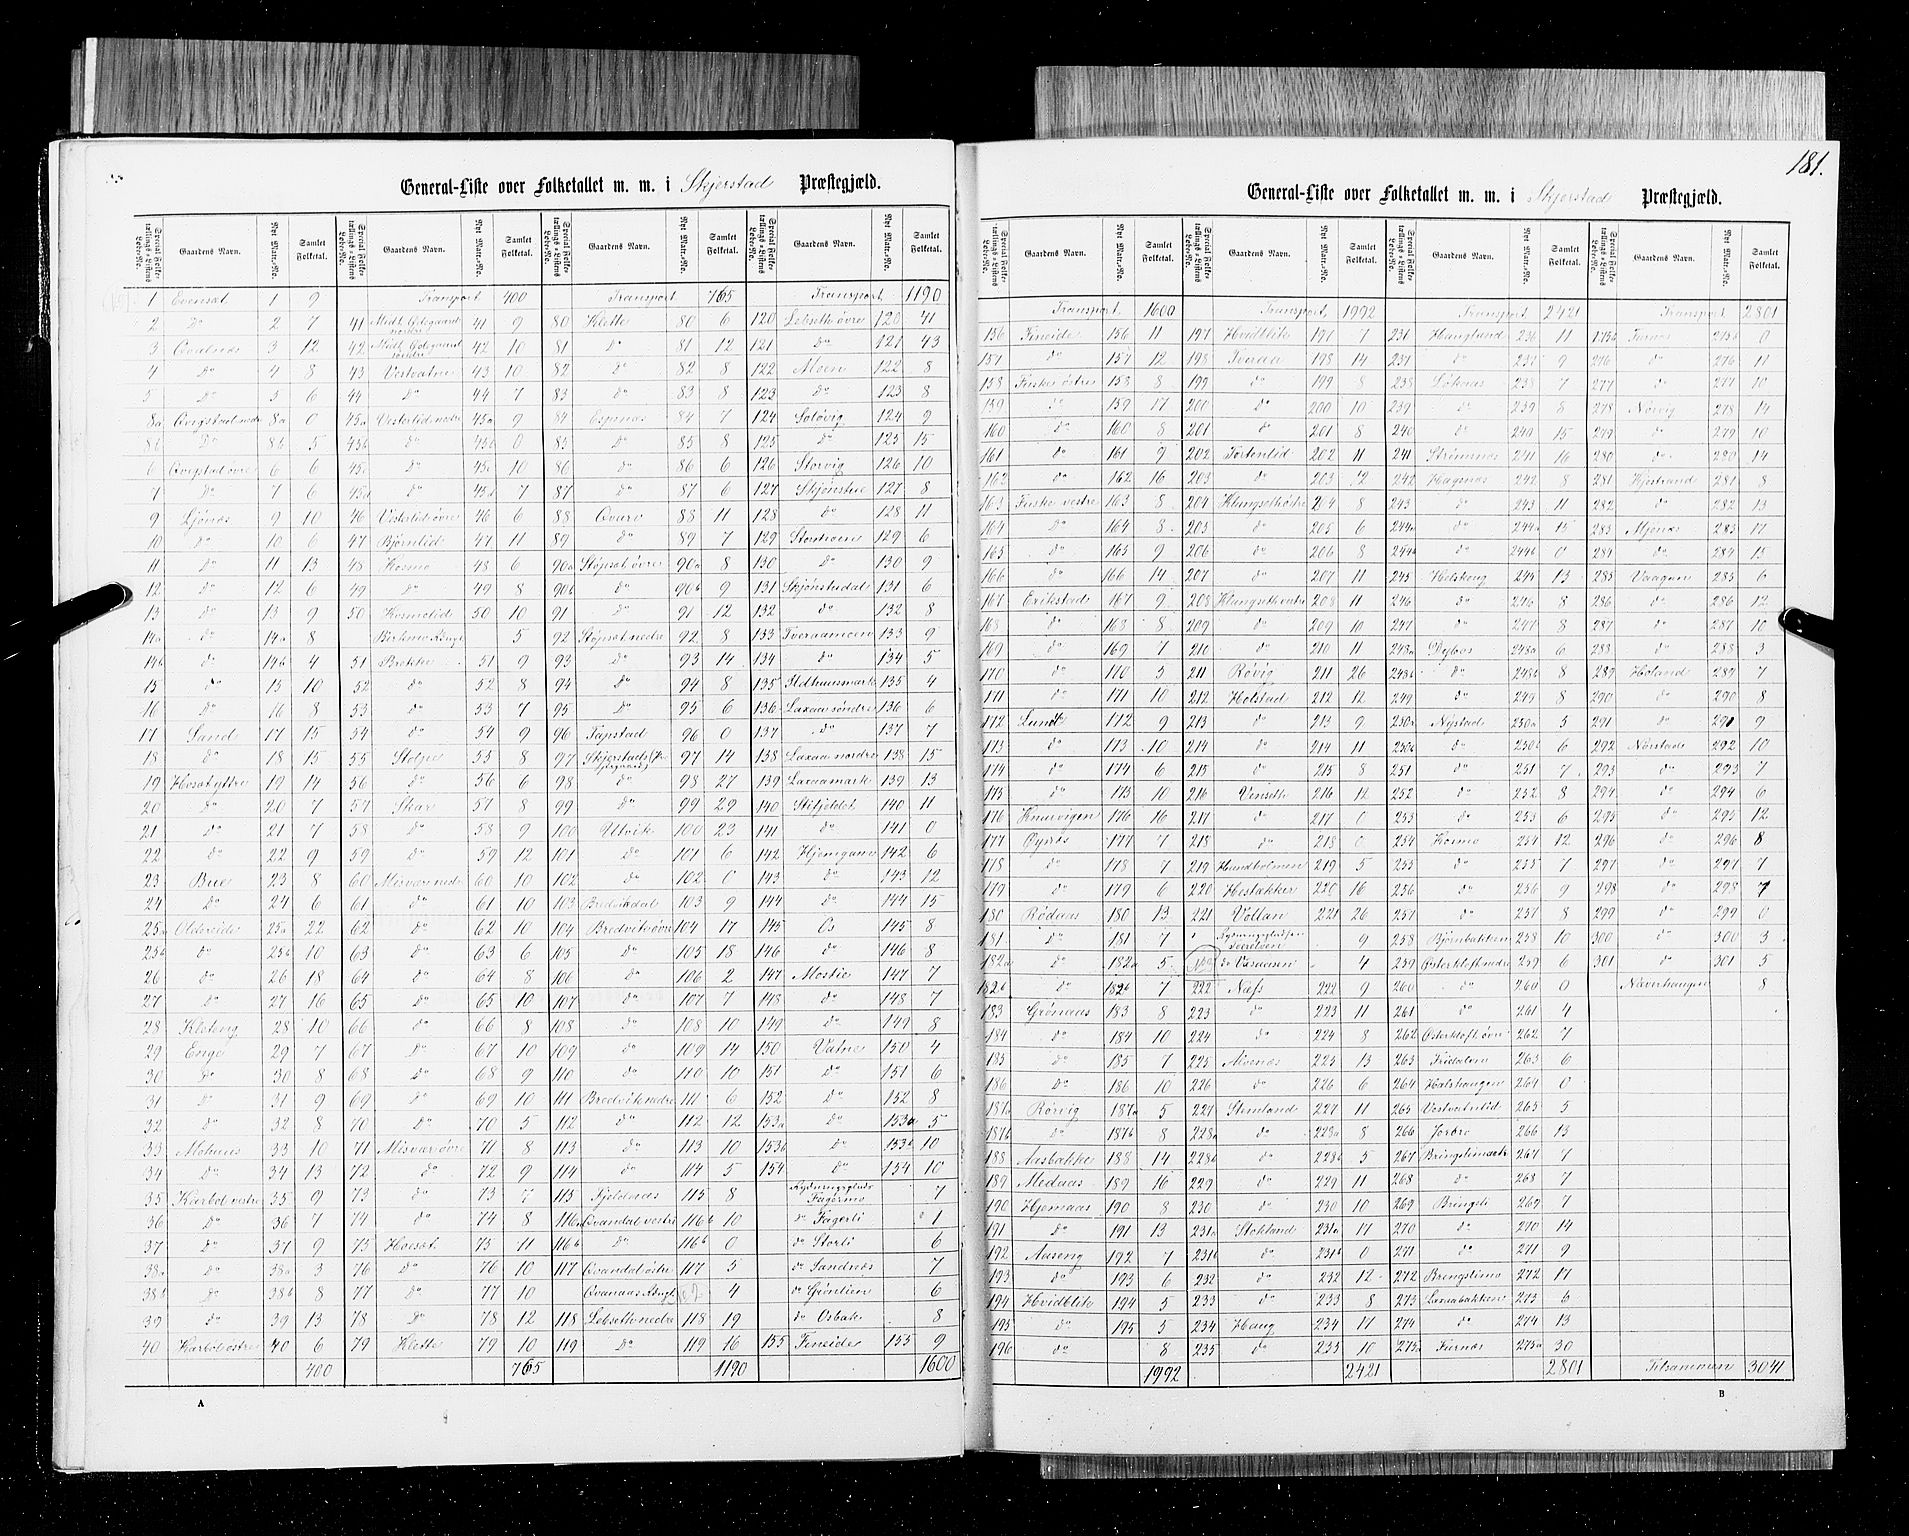 181.
General-Liste over Folketallet m. m. i Skjerstad Præstegjæld.
Special Folketællings-Listens Løbe-No. Gaardens Navn. Nyt Matr.-No. Samlet Folketal.
1 Evensat 1 9
2 Do 2 7
3 3 12
4 Do 4 8
5 Do 5 6
8a 8a 0
8b Do 8b 5
6 6 6
7 Do 7 6
9 Ljønæs 9 10
10 Do 10 6
11 Do 11 13
12 Do 12 6
13 Do 13 9
14a Do 14a 8
14b Do 14b 4
15 Do 15 10
16 Do 16 8
17 Sand 17 15
18 Do 18 15
19 19 14
20 Do 20 7
21 Do 21 7
22 Do 22 9
23 Bue 23 8
24 Do 24 6
25a Oldereide 25a 22
25b Do 25b 10
26 Do 26 18
27 Do 27 16
28 Kleteng 28 10
29 Enge 29 7
30 Do 30 8
31 Do 31 9
32 Do 32 8
33 33 10
34 Do 34 13
35 Karbøl vestre 35 9
36 Do 36 7
37 Do 37 9
38a Do 38a 3
38b Do 38b 8
39 Do 39 13
40 Karbøl østre 40 6
400
Transport 400
41 41 9
42 42 10
43 Vestvatne 43 10
44 Do 44 7
45a Vesterlid nedre 45a 9
45b Do 45b 0
45c Do 45c 10
45d Do 45d 7
46 Vesterlid øvre 46 6
47 Bjørnlid 47 11
48 Kosmo 48 6
49 Do 49 8
50 Kosmolid 50 10
5
51 Brekke 51 9
52 Do 52 8
53 Do 53 7
54 Do 54 9
55 Stolpe 55 8
56 Do 56 6
57 Skar 57 8
58 Do 58 9
59 Do 59 12
60 Misvær nedre 60 10
61 Do 61 10
62 Do 62 10
63 Do 63 6
64 Do 64 8
65 Do 65 10
66 Do 66 8
67 Do 67 10
68 Do 68 9
69 Do 69 10
70 Do 70 5
71 Misvær øvre 71 8
72 Do 72 9
73 Do 73 7
74 Do 74 8
75 75 11
76 Do 76 10
77 Do 77 10
78 Do 78 12
79 Klette 79 10
765
Transport 765
80 Klette 80 6
81 Do 81 12
82 Do 82 8
83 Do 83 8
84 Espenæs 84 7
85 Do 85 8
86 Do 86 6
87 Do 87 6
88 Kvarv 88 11
89 Do 89 7
90a Støpsat øvre 90a 8
90b Do 90b 9
91 Do 91 12
92 Støpsat nedre 92 8
93 Do 93 14
94 Do 94 8
95 Do 95 6
96 Tapstad 96 0
97 Skjerstad 97 14
98 Do 98 27
99 Do 99 29
100 Utvik 100 23
101 Do 101 6
102 Do 102 0
103 Bredvikdal 103 9
104 Bredvik øvre 104 17
105 Do 105 18
106 Do 106 2
107 Do 107 7
108 Do 108 10
109 Do 109 14
110 Do 110 10
111 Bredvik nedre 111 6
112 Do 112 12
113 Do 113 10
114 Do 114 5
115 Fjeldnæs 115 8
116a Kvandal vestre 116a 10
116b Do 116b 0
117 Kvandal østre 117 5
4
118 Lebseth nedre 118 19
119 Do 119 16
1190
Transport 1190
120 Lebseth øvre 120 41
121 Do 121 43
122 Moen 122 8
123 Do 123 8
124 Soløvig 124 9
125 Do 125 15
126 Storvig 126 10
127 127 8
128 Do 128 11
129 129 6
130 Do 130 9
131 Skjønstudal 131 6
132 Do 132 8
133 Tveraamoen 133 9
134 Do 134 5
135 135 4
136 Laxaa søndre 136 6
137 Do 137 7
138 Laxaa nordre 138 15
139 Laxaamark 139 13
140 Stifjeldet 140 11
141 Do 141 0
142 Hjemgam 142 6
143 Do 143 12
144 Do 144 15
145 Os 145 8
146 Do 146 8
147 Mostie 147 7
148 Do 148 7
149 Do 149 8
150 Vatne 150 4
151 Do 151 6
152 Do 152 8
153a Do 153a 5
153b Do 153b 10
154 Do 154 10
Rydningsplads Fagermo 7
Do Fagerli 1
Do Storli 6
Do Sandnæs 7
Do Grønlien 6
Do Osbak 8
155 Fineide 155 9
1600
General-Liste over Folketallet m. m. i Skjerstad Præstegjæld.
Transport 1600
156 Fineide 156 11
157 Do 157 12
158 Fuske østre 158 8
159 Do 159 17
160 Do 160 8
161 Do 161 9
162 Do 162 16
163 Fuske vestre 163 8
164 Do 164 8
165 Do 165 9
166 Do 166 14
167 Erikstad 167 9
168 Do 168 8
169 Do 169 7
170 Do 170 3
171 Do 171 10
172 Lund 172 9
173 Do 173 10
174 Do 174 6
175 Do 175 10
176 Knarvigen 176 16
177 Øynæs 177 7
178 Do 178 7
179 Do 179 6
180 Rødaas 180 13
181 Do 181 7
182a Do 182a 5
182b Do 182b 7
183 Grønaas 183 8
184 Do 184 10
185 Do 185 7
186 Do 186 10
187a Rørvig 187a 5
187b Do 187b 8
188 Aasbakke 188 14
189 Medaas 189 16
190 Hjemaas 190 8
191 Do 191 13
192 Aaseng 192 7
193 Do 193 6
194 Hvidblik 194 5
195 Do 195 5
196 Do 8
1992
Transport 1992
197 Hvidblik 197 7
198 Tveraa 198 14
199 Do 199 8
200 Do 200 10
201 Do 201 8
202 Tortenlid 202 11
203 Do 203 12
204 Klungseth østre 204 8
205 Do 205 6
206 Do 206 8
207 Do 207 11
208 Klungseth vestre 208 11
209 Do 209 10
210 Do 210 11
211 Røvig 211 26
212 Holstad 212 12
213 Do 213 9
214 Do 214 11
215 Do 215 8
216 Venseth 216 12
217 Do 217 0
218 Do 218 0
219 Hundholmen 219 5
220 Hestakker 220 16
221 Voltan 221 26
Rydningspladsen 9
Do 4
222 Næfs 222 9
223 Do 223 11
224 Do 224 8
225 Alvenæs 225 13
226 Do 226 6
227 Stemland 227 11
228a Do 228a 8
228b Do 228b 5
229 Do 229 11
230 Do 230 10
231a Stokland 231a 17
231b Do 231b 0
232 Do 232 12
233 Do 233 8
234 Haug 234 17
235 Do 235 10
2421
Transport 2421
236 Haugland 236 11
237 Do 237 9
238 Løkaas 238 7
239 Do 239 8
240 Do 240 15
241 Strømsnæs 241 16
242 Hagenæs 242 8
243 Do 243 11
244a Do 244a 15
244b Do 244b 0
245 Helskoug 245 13
246 Do 246 8
247 Do 247 8
248a Dybos 248a 6
248b Do 248b 8
249 Do 249 8
250a Nystad 250a 5
250b Do 250b 6
251 Do 251 7
252 Do 252 8
253 Do 253 6
254 Kosmo 254 12
255 Do 255 7
256 Do 256 9
257 Do 257 8
258 Bjørnbakken 258 10
259 Østerkløft nedre 259 6
260 Do 260 0
261 Do 261 4
262 Østerkløft øvre 262 7
263 263 6
264 Halshaugen 264 0
265 Vestvatnlid 265 5
266 Jordbro 266 13
267 267 7
268 Do 268 7
269 Bringsli 269 7
270 Do 270 14
271 Do 271 9
272 Bringslimo 272 17
273 Laxaabakken 273 6
274 Do 274 13
275a Furnæs 275a 30
2801
Transport 2801
275b Furnæs 275b 0
276 Do 276 11
277 Do 277 10
278 Nørvig 278 14
279 Do 279 10
280 Do 280 14
281 Hjestrand 281 8
282 Do 282 13
283 Mjønæs 283 17
284 Do 284 15
285 Vaagan 285 6
286 Do 286 12
287 Do 287 10
288 Do 288 3
289 Holand 289 7
290 Do 290 8
291 Do 291 9
292 Nørstad 292 10
293 Do 293 7
294 Do 294 6
295 Do 295 12
296 Do 296 8
297 Do 297 7
298 Do 298 7
299 Do 299 0
300 Do 300 3
301 Do 301 5
Naverhaugen 8
Tilsammen 3041
A
B